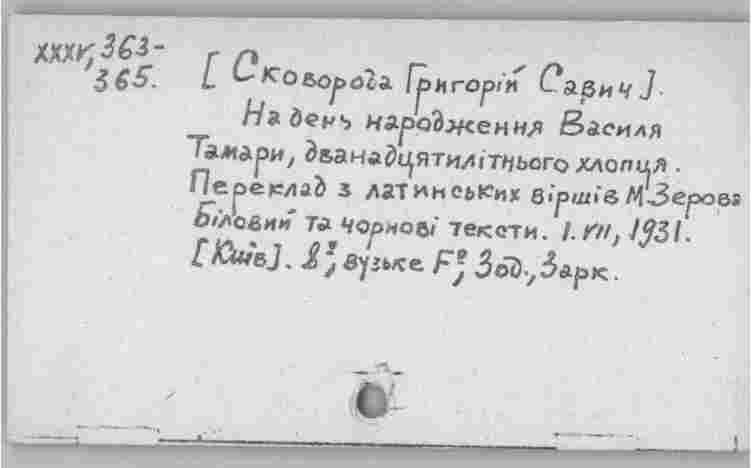 XXXV, 363-
365.
[Сковорода Григорій Савич].
На день народження Василя
Тамари, дванадцятилітнього хлопця.
Переклад з латинських віршів М.Зерова
Біловий та чорнові тексти. 1.VII, 1931.
[Київ]. 8°, вузьке F°, 3 од., 3 арк.